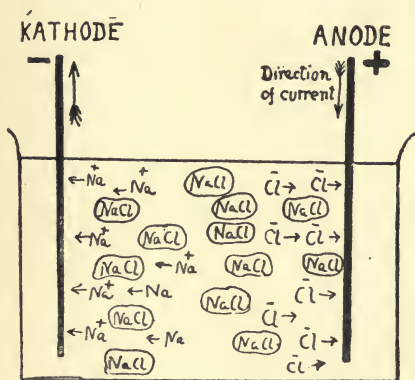 KATHODE ANODE
− +
Direction
of current
←Na⁺ ←Na⁺ NaCl Cl⁻→ Cl⁻→
NaCl NaCl NaCl
←Na⁺ NaCl NaCl Cl⁻→ Cl⁻→
NaCl ←Na⁺ NaCl NaCl
←Na⁺ ←Na NaCl Cl⁻→
NaCl Cl⁻→
←Na⁺ ←Na NaCl Cl⁻→
NaCl Cl⁻→